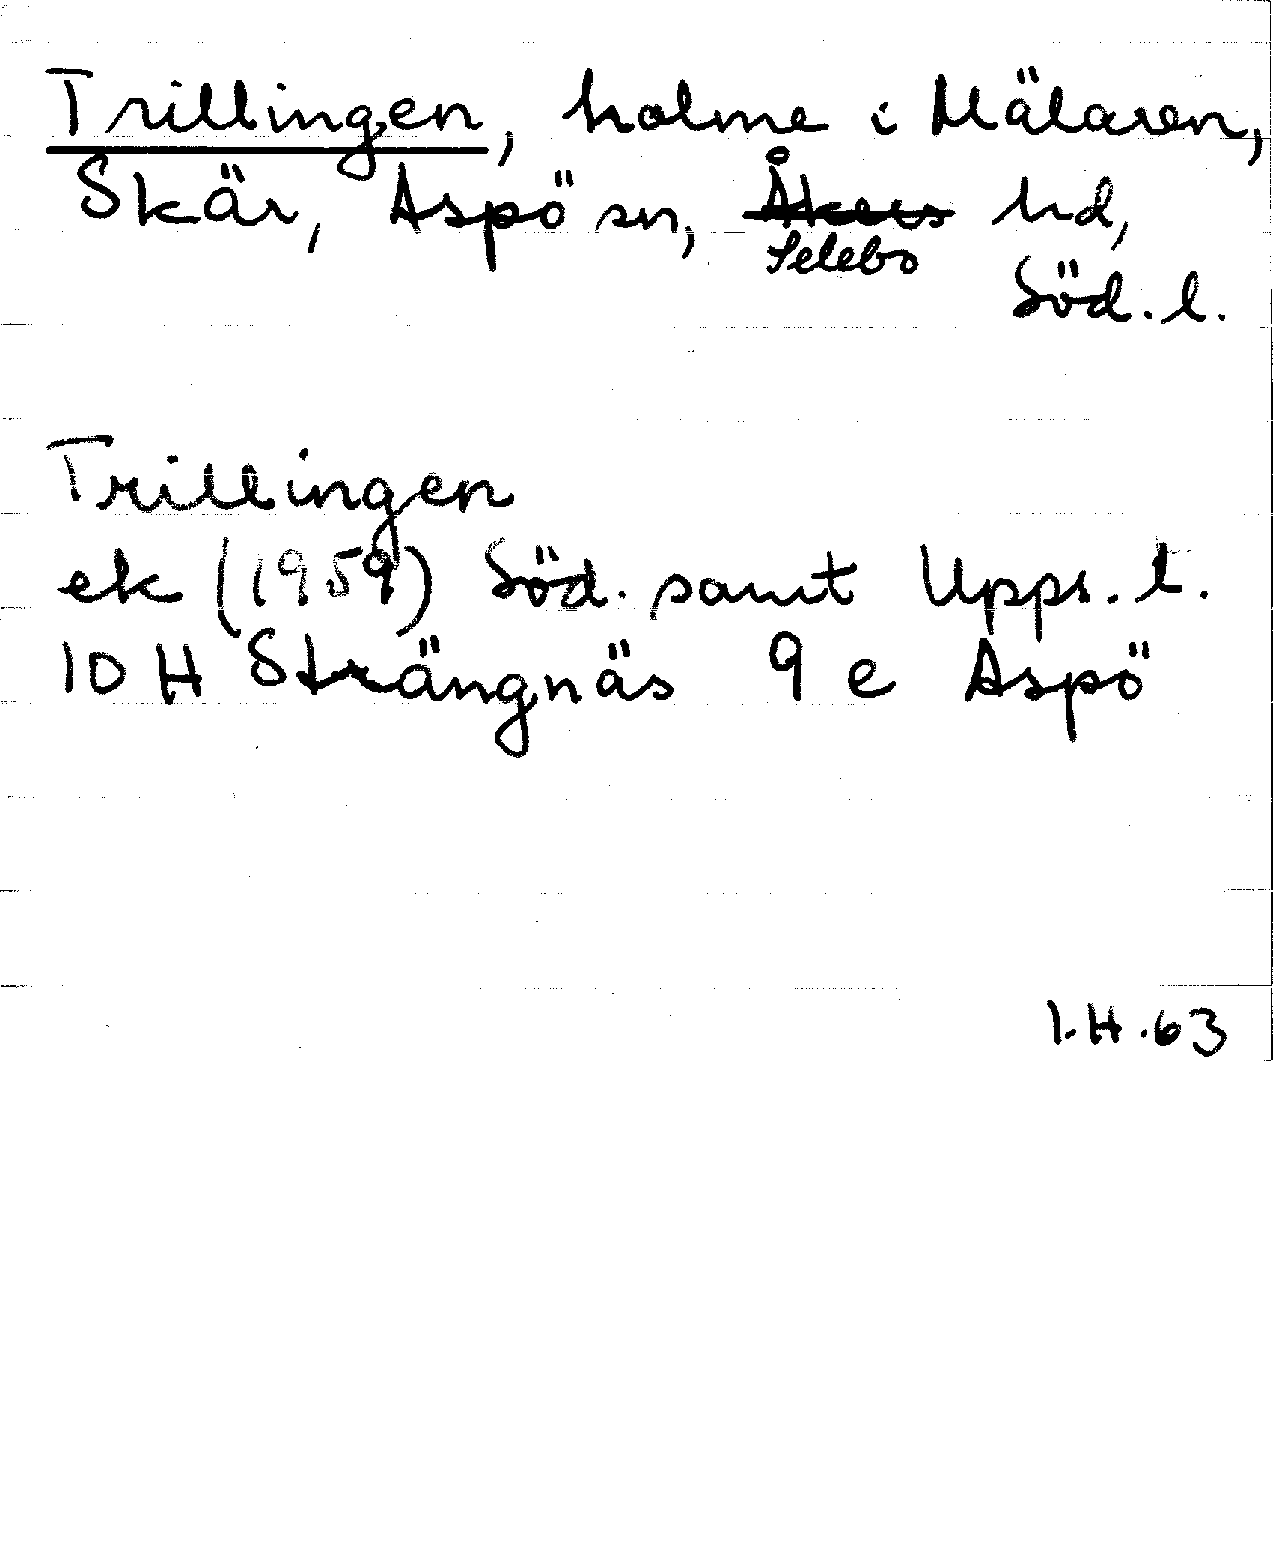 Trillingen, holme i Mälaren,
Skär, Aspö sn, Åkers hd,
Selebo
Söd. l.
Trillingen
ek (1959) Söd. samt Upps. l.
10 H Strängnäs 9 e Aspö
I.H.63